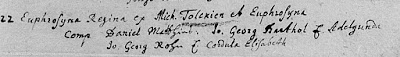 22 Euphrosyna Regina ex Mich. Tolckien et Euphrosyna
Comp Daniel Io. Georg Barthol E Adelgunda
Io. Georg E Cordula Elisabeth